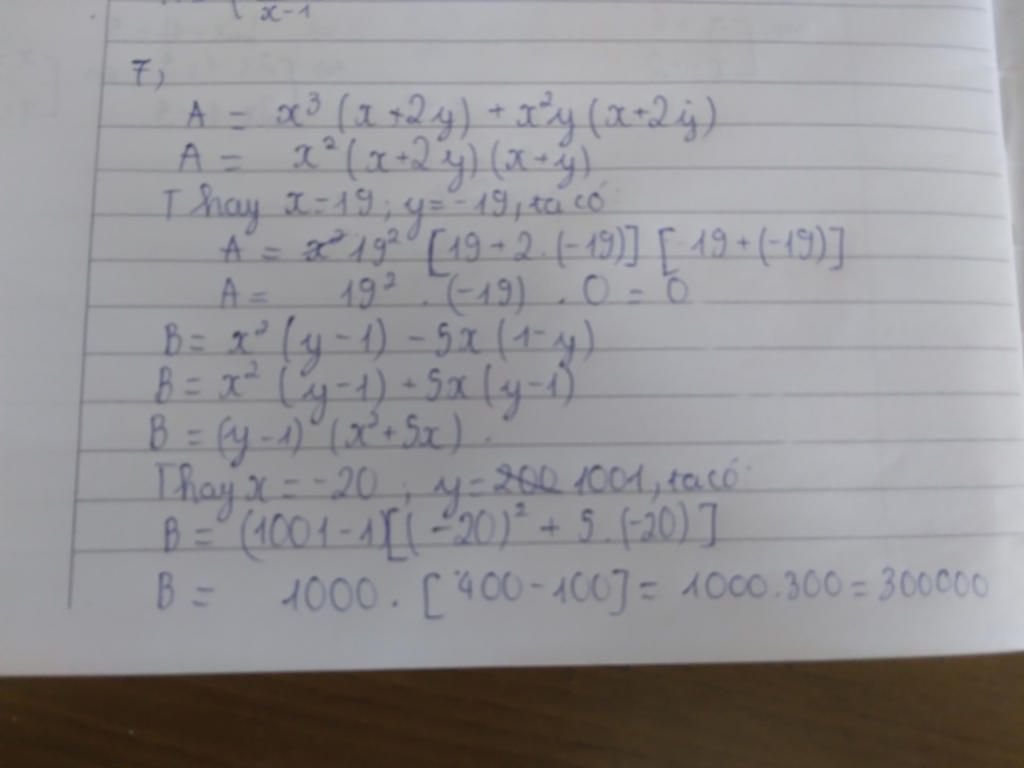 x-1
7,
A = x³ (x+2y) + x²y (x+2y)
A = x² (x+2y) (x+y)
Thay x=19; y=-19, ta có
A = 19² [19+2.(-19)] [19+(-19)]
A = 19² . (-19) . 0 = 0
B = x² (y-1) - 5x (1-y)
B = x² (y-1) + 5x (y-1)
B = (y-1) (x²+5x).
Thay x = -20 ; y = 1001, ta có
B = (1001-1)[(-20)² + 5.(-20)]
B = 1000 . [400-100] = 1000.300 = 300000